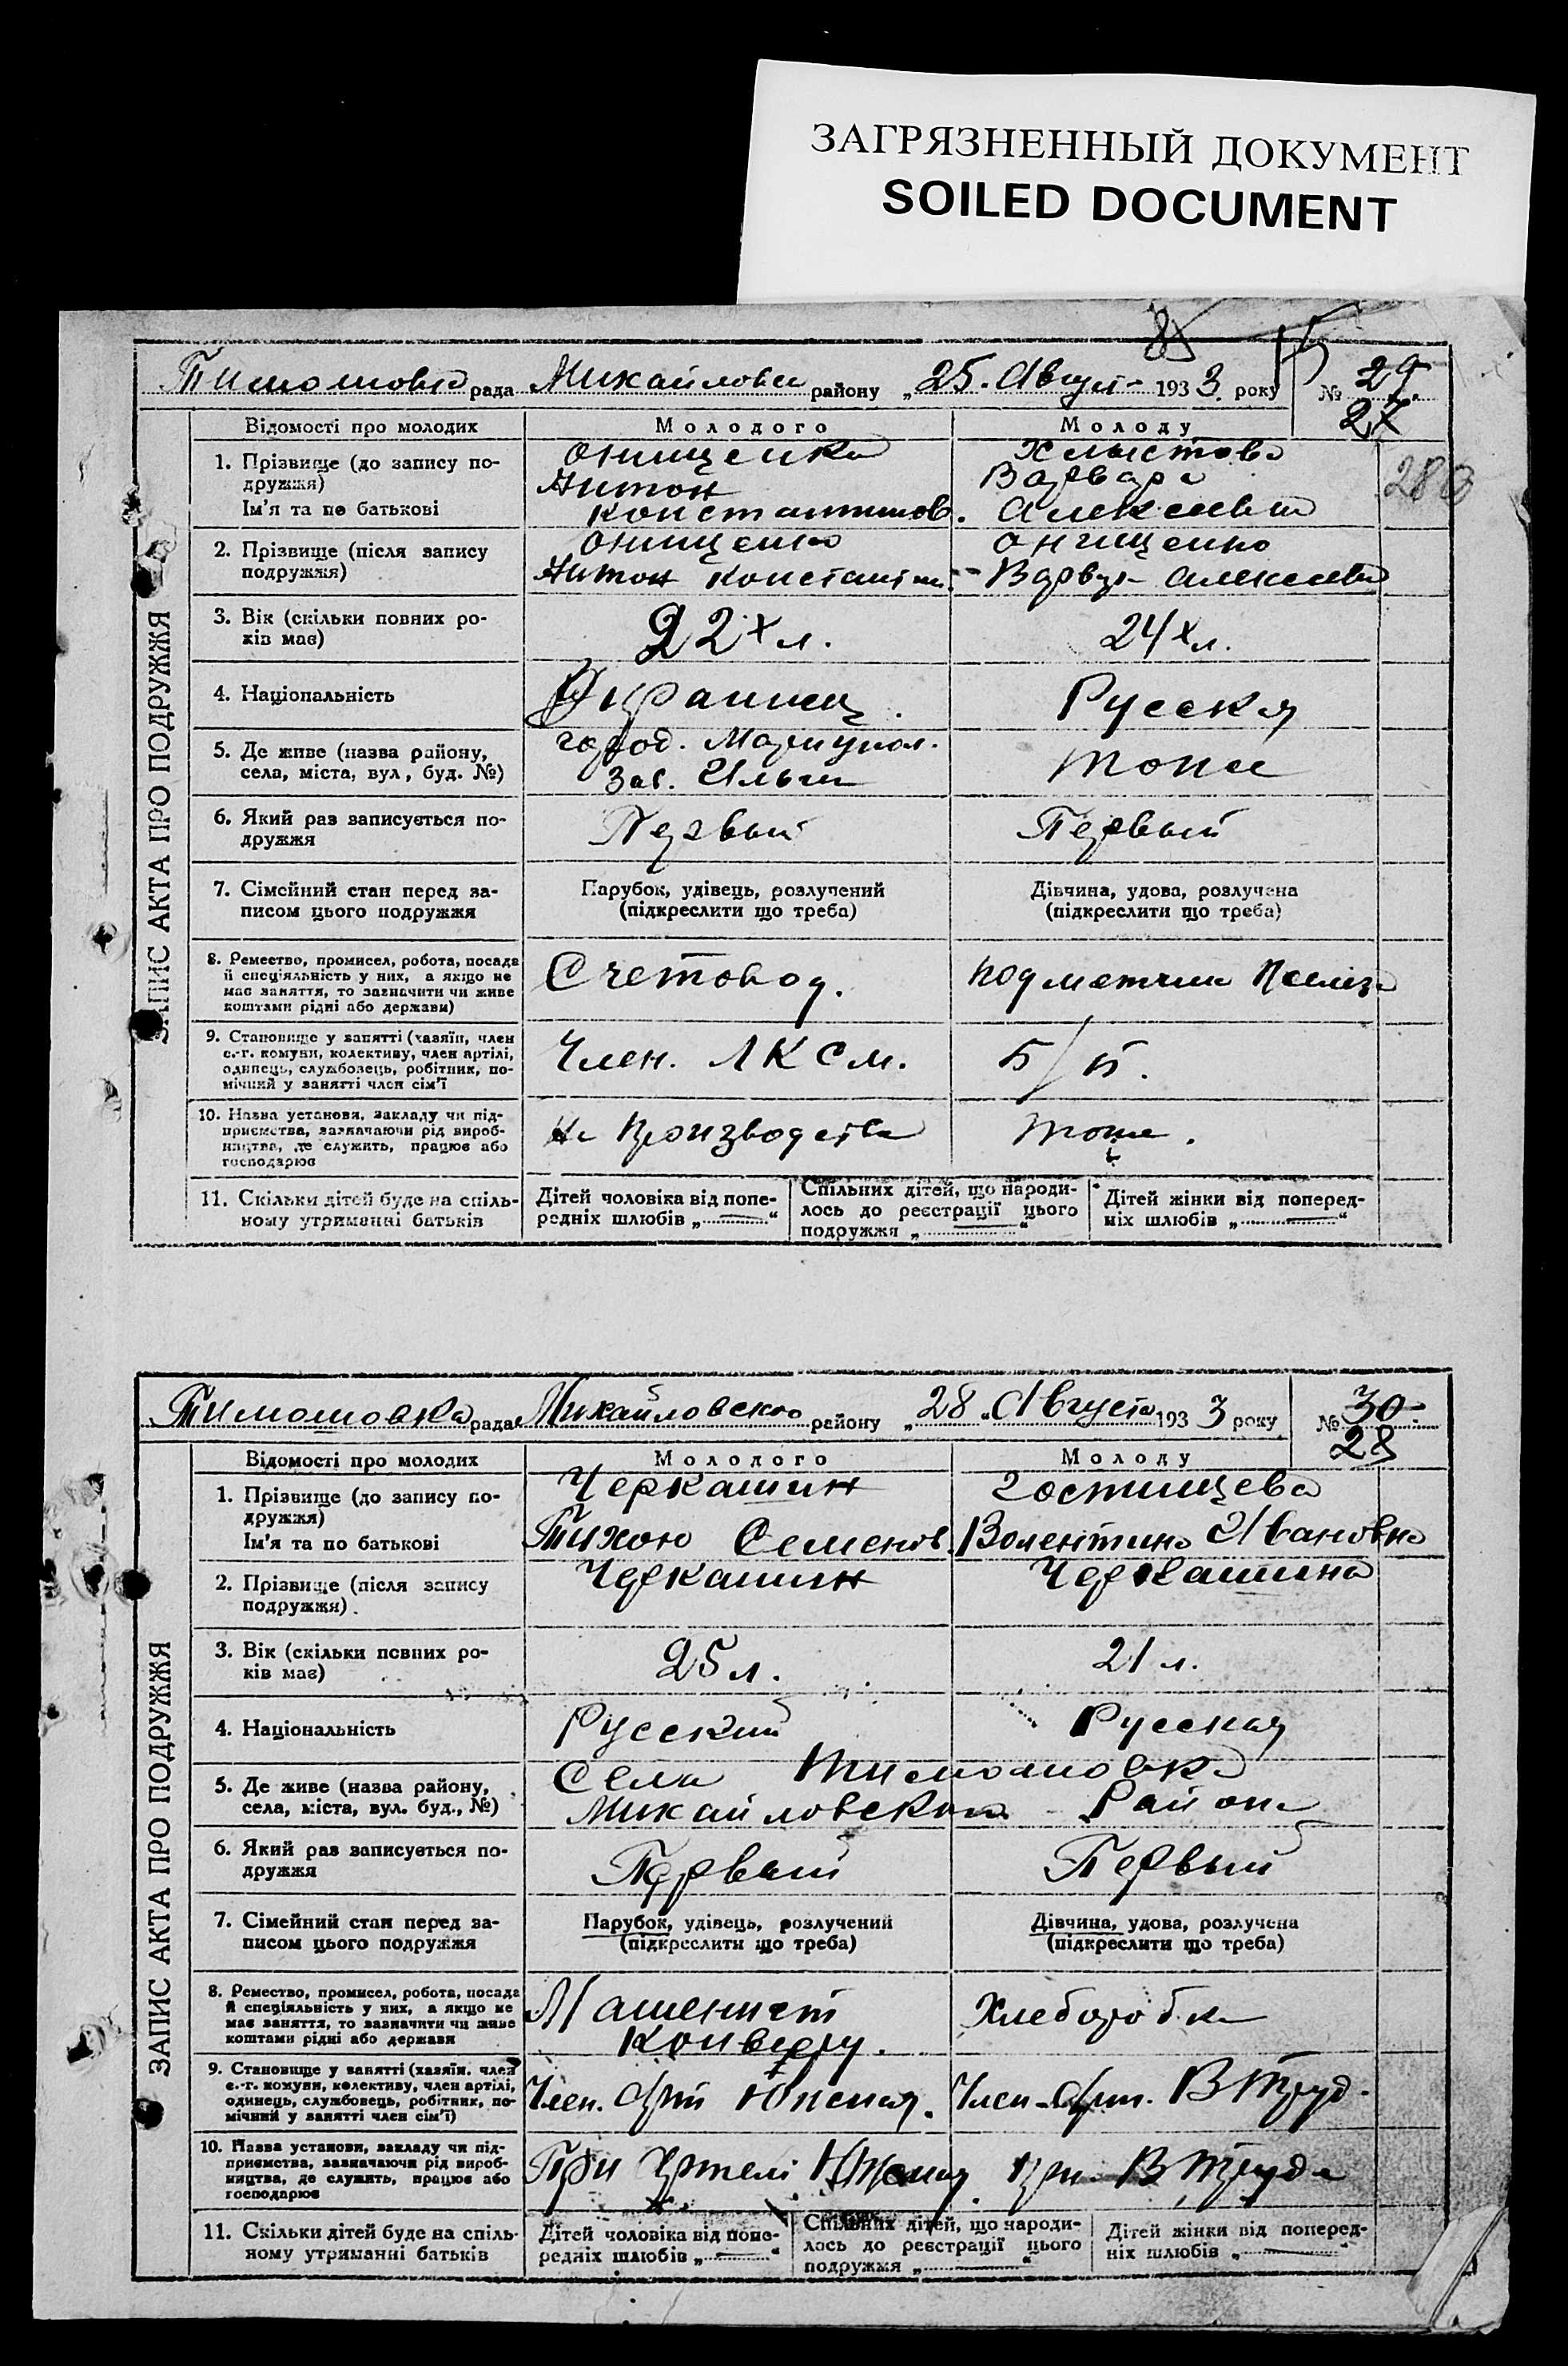 ЗАГРЯЗНЕННЫЙ ДОКУМЕНТ
SOILED DOCUMENT
85
Тимошовка рада Михайловск району „25. Август 1933 року № 29
27
Відомості про молодих Молодого Молоду
280
1. Прізвище (до запису по-
дружжя)
Ім'я та по батькові
Онищенко
Антон
Константинов.
Хлыстова
Варвара
Алексеевна
2. Прізвище (після запису
подружжя)
Онищенко
Антон Константин.
Онищенко
Варвар Алексеевна
3. Вік (скільки повних ро-
ків має)
22х л.
24х л.
4. Національність
Украинец.
Русская
5. Де живе (назва району,
села, міста, вул, буд. №)
город. Мариупол.
Зав. Ильича
Тоже
6. Який раз записується по-
дружжя
Первый
Первый
7. Сімейний стан перед за-
писом цього подружжя
Парубок, удівець, розлучений
(підкреслити що треба)
Дівчина, удова, розлучена
(підкреслити що треба)
8. Ремество, промисел, робота, посада
й спеціяльність у них, а якщо не
має заняття, то зазначити чи живе
коштами рідні або держави)
Счетовод.
9. Становище у занятті (хазяїн, член
с.-г. комуни, колективу, член артілі,
одинець, службовець, робітник, по-
мічний у занятті член сім'ї
Член. ЛКСМ.
Б/П.
10. Назва установи, закладу чи під-
приємства, зазначаючи рід вироб-
ництва, де служить, працює або
господарює
На производстве
Тоже.
11. Скільки дітей буде на спіль-
ному утриманні батьків
Дітей чоловіка від попе-
редніх шлюбів „—“
Спільних дітей, що народи-
лось до реєстрації цього
подружжя „—“
Дітей жінки від поперед-
ніх шлюбів „—“
ЗАПИС АКТА ПРО ПОДРУЖЖЯ
Тимошовка рада Михайловского району „28 „Августа 1933 року № 30
28
Відомості про молодих Молодого Молоду
1. Прізвище (до запису по-
дружжя)
Ім'я та по батькові
Черкашин
Тихон Семенов.
Гостищева
Волентина Ивановна
2. Прізвище (після запису
подружжя)
Черкашин
Черкашина
3. Вік (скільки повних ро-
ків має)
25 л.
21 л.
4. Національність
Русский
Русская
5. Де живе (назва району,
села, міста, вул. буд., №)
Села Тимошовка
Михайловского Района
6. Який раз записується по-
дружжя
Первый
Первый
7. Сімейний стан перед за-
писом цього подружжя
Парубок, удівець, розлучений
(підкреслити що треба)
Дівчина, удова, розлучена
(підкреслити що треба)
8. Ремество, промисел, робота, посада
й спеціяльність у них, а якщо не
має заняття, то зазначити чи живе
коштами рідні або держави
Машенист
Хлеборобка
9. Становище у занятті (хазяїн. член
с.-г. комуни, колективу, член артілі,
одинець, службовець, робітник, по-
мічний у занятті член сім'ї)
Член. Арт
Член Арт. В Труд.
10. Назва установи, закладу чи під-
приємства, зазначаючи рід вироб-
ництва, де служить, працює або
господарює
При Артели
В Труда
11. Скільки дітей буде на спіль-
ному утриманні батьків
Дітей чоловіка від попе-
редніх шлюбів „—“
Спільних дітей, що народи-
лось до реєстрації цього
подружжя „—“
Дітей жінки від поперед-
ніх шлюбів „—“
ЗАПИС АКТА ПРО ПОДРУЖЖЯ